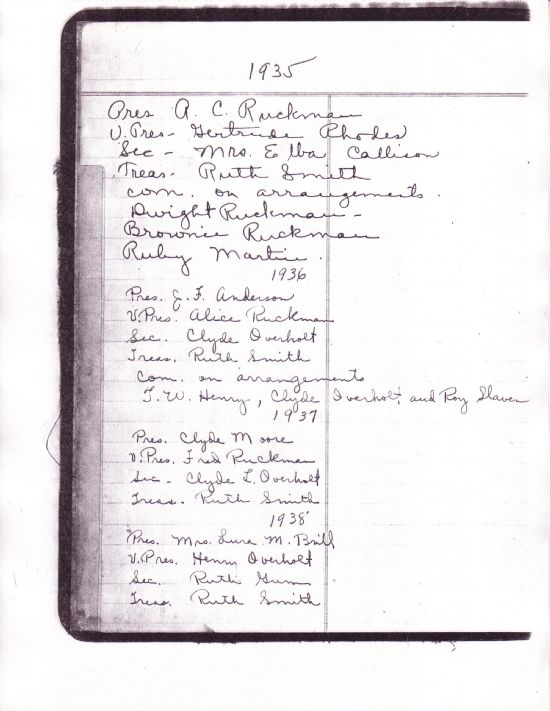 1935
Pres A. C. Ruckman
V. Pres - Gertrude Rhodes
Sec - Mrs. Elba Callison
Treas - Ruth Smith
com. on arrangements.
Dwight Ruckman -
Brownie Ruckman
Ruby Martin.
1936
Pres. J. F. Anderson
V. Pres. Alice Ruckman
Sec. Clyde Overholt
Treas. Ruth Smith
Com. on arrangements
T. W. Henry, Clyde Overholt, and Roy Slaven
1937
Pres. Clyde Moore
V. Pres. Fred Ruckman
Sec - Clyde L. Overholt
Treas. Ruth Smith
1938
Pres. Mrs. Lura M. Brill
V. Pres. Henry Overholt
Sec. Ruth Gum
Treas. Ruth Smith